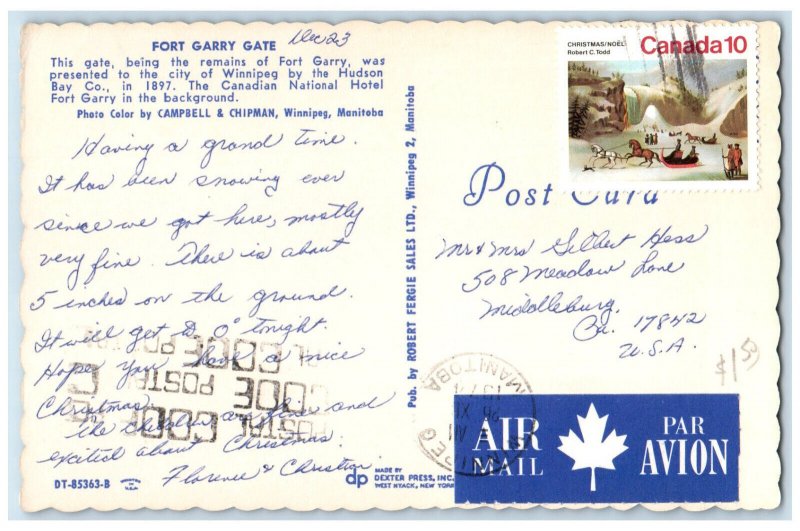 FORT GARRY GATE
Dec 23
This gate, being the remains of Fort Garry, was
presented to the city of Winnipeg by the Hudson
Bay Co., in 1897. The Canadian National Hotel
Fort Garry in the background.
Photo Color by CAMPBELL & CHIPMAN, Winnipeg, Manitoba
Having a grand time.
It has been snowing ever
since we got here, mostly
very fine. There is about
5 inches on the ground.
It will get to 0° tonight.
Hope you have a nice
Christmas.
the children are fine and
excited about Christmas.
Florence & Christian
DT-85363-B
MADE BY
dp DEXTER PRESS, INC.
WEST NYACK, NEW YORK
Pub. by ROBERT FERGIE SALES LTD., Winnipeg 2, Manitoba
CHRISTMAS/NOËL
Robert C. Todd
Canada 10
Post Card
Mr & Mrs Gilbert Hess
508 Meadow Lane
Middleburg,
Pa. 17842
U.S.A.
$1.50
MANITOBA
WINNIPEG
POSTAL CODE
CODE POSTAL
POSTAL CODE
AIR MAIL
PAR AVION